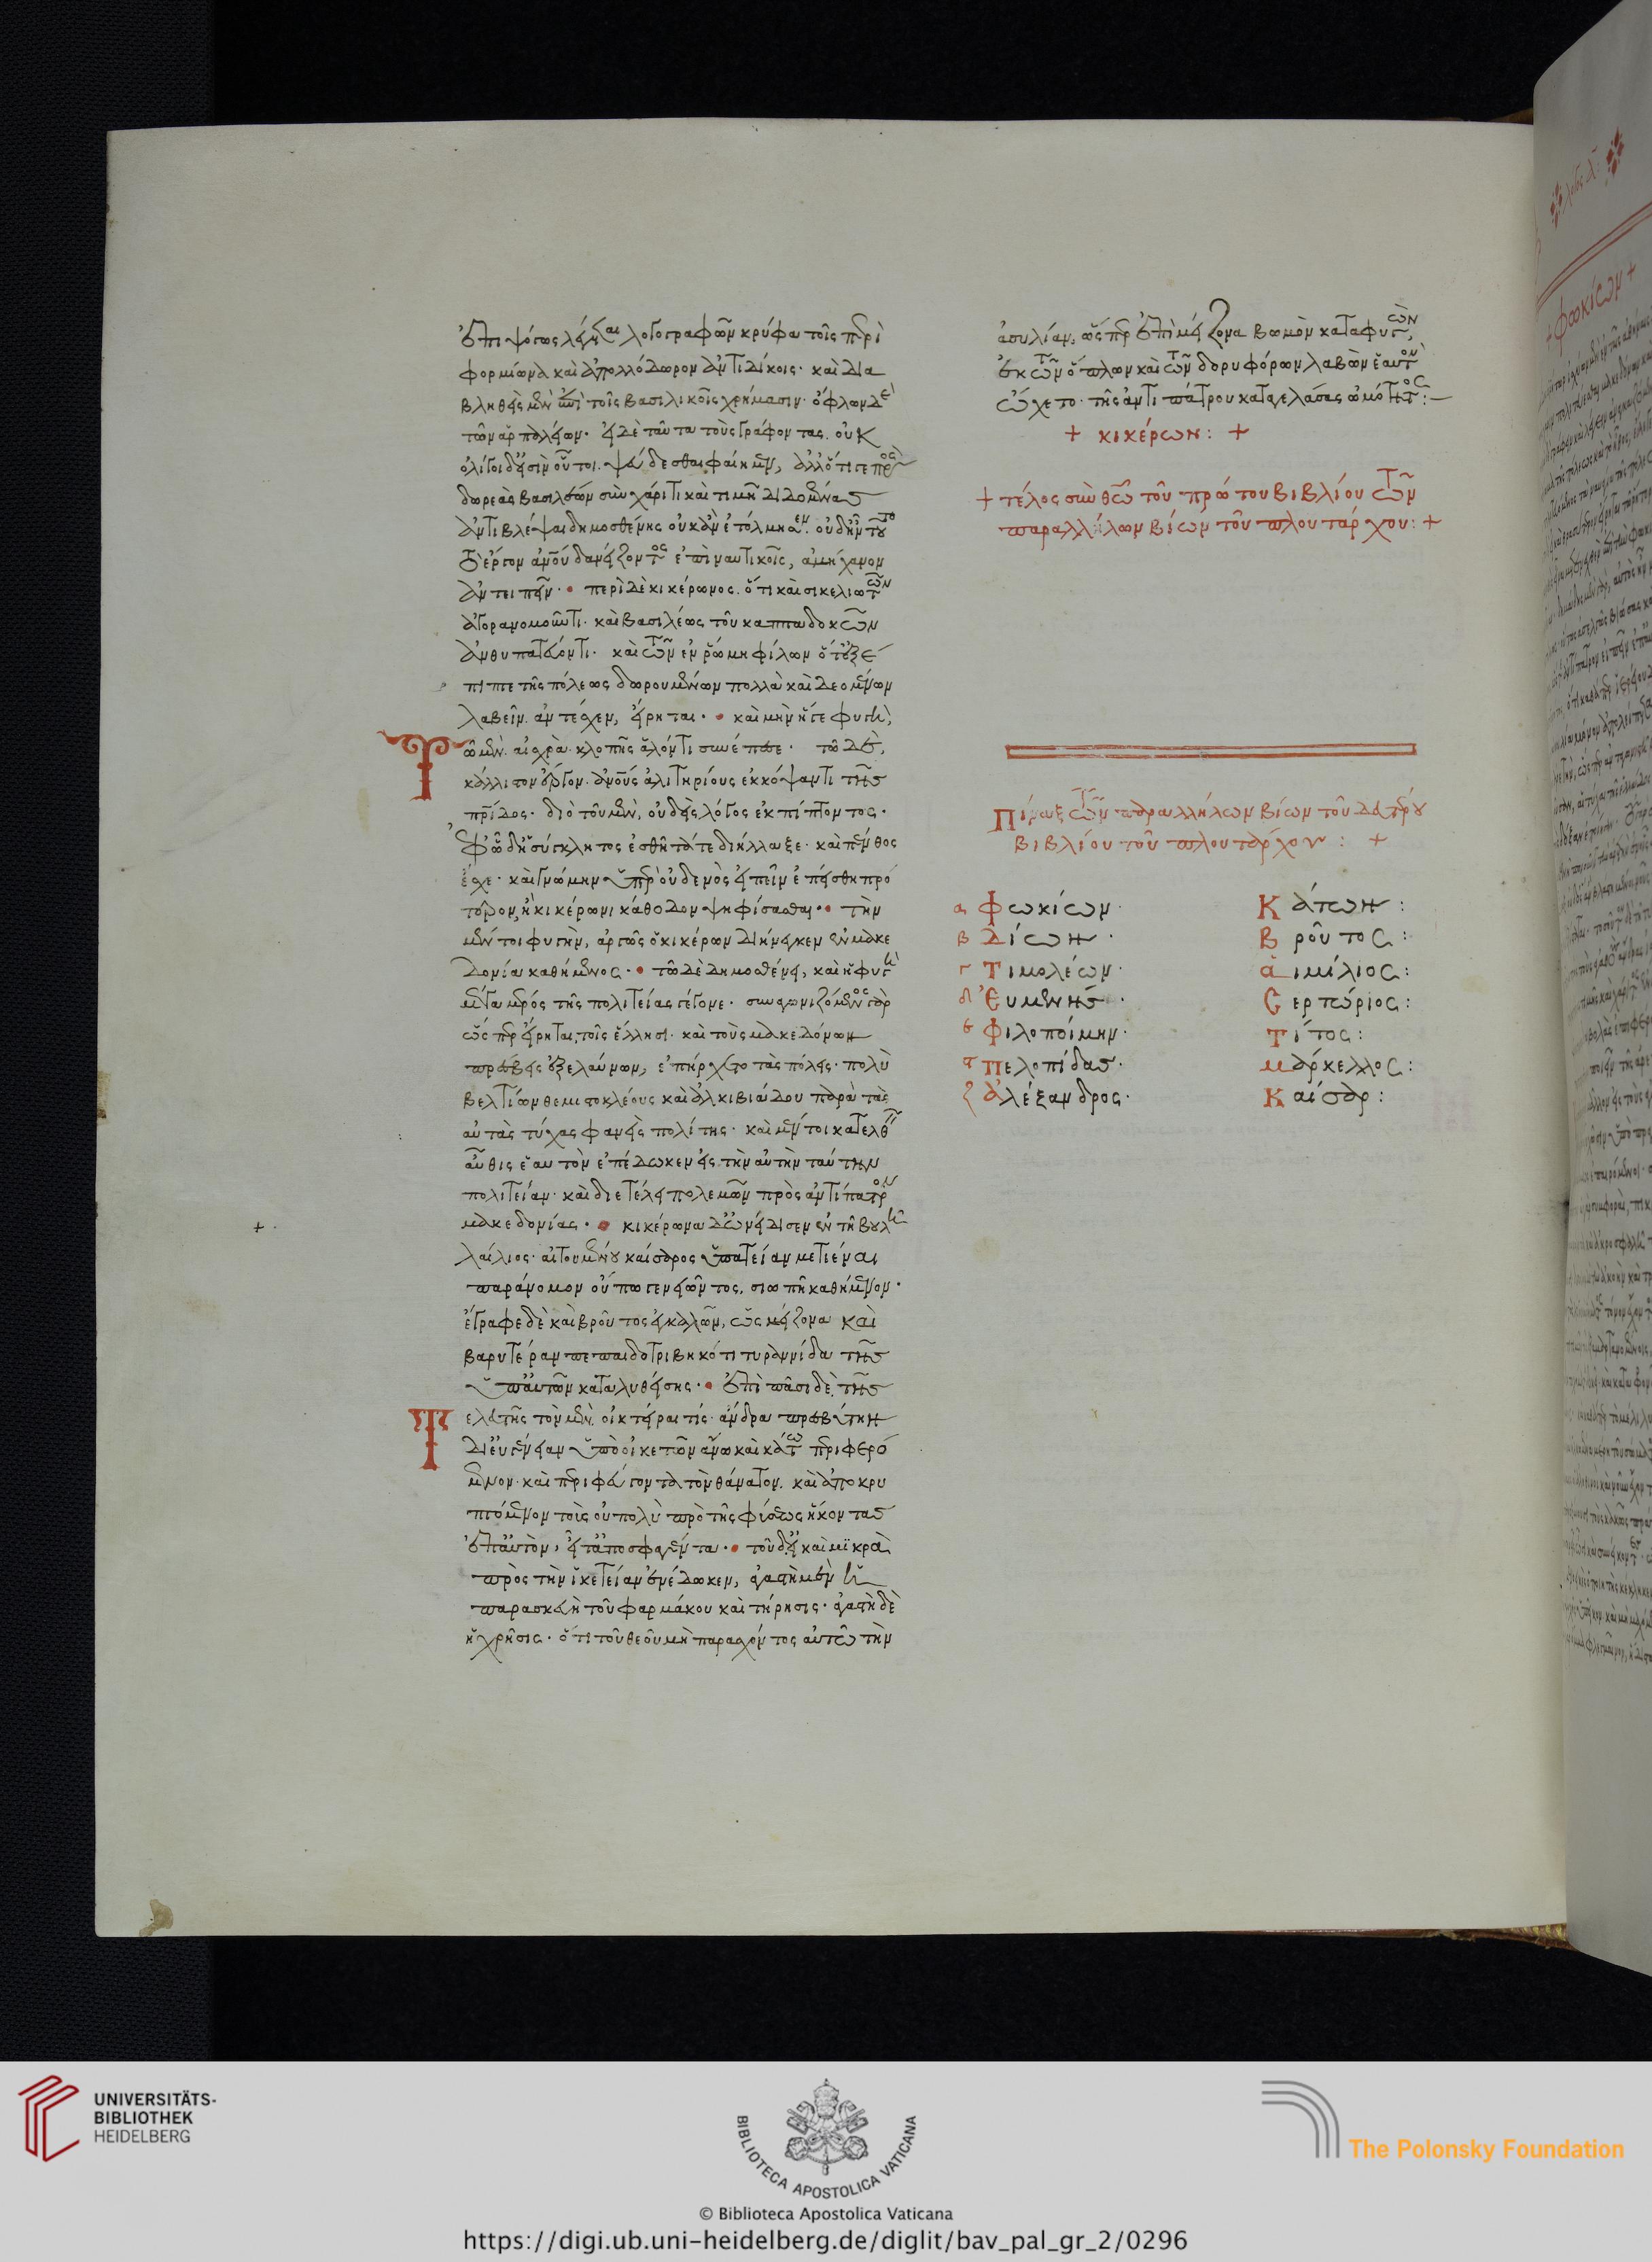 ἐπιψόγως λέγεται λογογραφῶν κρύφα τοῖς περὶ
φορμίωνα καὶ ἀπολλόδωρον ἀντιδίκοις· καὶ δια
βληθεὶς μὲν ἐπὶ τοῖς βασιλικοῖς χρήμασιν· ὀφλὼν δὲ
τῶν ἁρπαλείων· εἰ δὲ ταῦτα τοὺς γράφοντας οὐκ
ὀλίγοι δ' εἰσὶν οὗτοι ψεύδεσθαι φαίημεν, ἀλλ' ὅτι γε πρὸς
δωρεὰς βασιλέων σὺν χάριτι καὶ τιμῆ διδομένας
ἀντιβλέψαι δημοσθένης οὐκ ἂν ἐτόλμησεν. οὐδ' ἦν τοῦτο
τὸ ἔργον ἀνθρώπου δανείζοντος ἐπὶ ναυτικοῖς, ἀμήχανον
ἀντειπεῖν· περὶ δὲ κικέρωνος. ὅτι καὶ σικελιωτῶν
ἀγορανομοῦντι· καὶ βασιλέως τοῦ καππαδοκῶν
ἀνθυπατεύοντι· καὶ τῶν ἐν ῥώμη φίλων ὅτ' ἐξέ
πιπτε τῆς πόλεως δωρουμένων πολλὰ καὶ δεομένων
λαβεῖν. ἀντέσχεν, εἴρηται· καὶ μὴν ἥγε φυγὴ,
Τῶ μὲν. αἰσχρὰ κλοπῆς ἁλόντι συνέπεσε· τῶ δὲ,
κάλλιστον ἔργον· ἀνθρώπους ἀλιτηρίους ἐκκόψαντι τῆς
πατρίδος· διὸ τοῦ μὲν, οὐδεὶς λόγος ἐκπίπτοντος·
ἐφ' ὧ δ' ἡ σύγκλητος ἐσθῆτά τε διήλλαξε· καὶ πένθος
ἔσχε· καὶ γνώμην ὑπὲρ οὐδενὸς εἰπεῖν ἐπείσθη πρό
τερον, ἢ κικέρωνι κάθοδον ψηφίσασθαι· τὴν
μέντοι φυγὴν, ἀργῶς ὁ κικέρων διήνεγκεν ἐν μακε
δονία καθήμενος· τῶ δὲ δημοσθένει, καὶ ἡ φυγὴ
μέγα μέρος τῆς πολιτείας γέγονε· συναγωνιζόμενος γὰρ
ὥσπερ εἴρηται, τοῖς ἕλλησι· καὶ τοὺς μακεδόνων
πρέσβεις ἐξελαύνων, ἐπήρχετο τὰς πόλεις· πολὺ
βελτίων θεμιστοκλέους καὶ ἀλκιβιάδου παρὰ τὰς
αὐτὰς τύχας φανεὶς πολίτης· καὶ μέντοι κατελθὼν
αὖθις ἑαυτὸν ἐπέδωκεν εἰς τὴν αὐτὴν ταύτην
πολιτείαν· καὶ διετέλει πολεμῶν πρὸς ἀντίπατρον
μακεδονίας· κικέρωνα δ' ὠνείδισεν ἐν τῆ βουλῆ
λαίλιος· αἰτουμένου καίσαρος ὑπατείαν μετιέναι
παράνομον οὔπω γενειῶντος, σιωπῆ καθήμενον·
ἔγραφε δὲ καὶ βροῦτος ἐγκαλῶν, ὡς μείζονα καὶ
βαρυτέραν πεπαιδοτριβηκότι τυραννίδα τῆς
ὑπ' αὐτῶν καταλυθείσης· ἐπὶ πᾶσι δὲ, τῆς
Τελευτῆς τὸν μὲν. οἰκτείραι τίς· ἄνδρα πρεσβύτην
δι' εὐγένειαν ὑπὸ οἰκετῶν ἄνω καὶ κάτω περιφερό
μενον· καὶ περιφεύγοντα τὸν θάνατον. καὶ ἀποκρυ
πτόμενον τοὺς οὐ πολὺ πρὸ τῆς φύσεως ἥκοντας
ἐπ' αὐτὸν, εἶτ' ἀποσφαγέντα· τοῦ δ' εἰ καὶ μικρὰ
πρὸς τὴν ἱκετείαν ἐνέδωκεν, ἀγαστὴ μὲν ἡ
παρασκευὴ τοῦ φαρμάκου καὶ τήρησις· ἀγαστὴ δὲ
ἡ χρῆσις· ὅτι τοῦ θεοῦ μὴ παρασχόντος αὐτῶ τὴν
ἀσυλίαν, ὥσπερ ἐπὶ μείζονα βωμὸν καταφυγὼν,
ἐκ τῶν ὅπλων καὶ τῶν δορυφόρων λαβὼν ἑαυτὸν
ὤχετο· τῆς ἀντιπάτρου καταγελάσας ὠμότητος:
+ κικέρων: +
+ τέλος σὺν θεῶ τοῦ πρώτου βιβλίου τῶν
παραλλήλων βίων τοῦ πλουτάρχου: +
Πίναξ τῶν παραλλήλων βίων τοῦ δευτέρου
βιβλίου τοῦ πλουτάρχου: +
α Φωκίων· Κάτων:
β Δίων· Βροῦτος:
γ Τιμολέων· Αἰμίλιος:
δ Εὐμένης· Σερτώριος:
ε Φιλοποίμην· Τίτος:
ϛ Πελοπίδας· Μάρκελλος:
ζ Ἀλέξανδρος· Καίσαρ:
+ φωκίων +
UNIVERSITÄTS-
BIBLIOTHEK
HEIDELBERG
BIBLIOTECA APOSTOLICA VATICANA
The Polonsky Foundation
© Biblioteca Apostolica Vaticana
https://digi.ub.uni-heidelberg.de/diglit/bav_pal_gr_2/0296